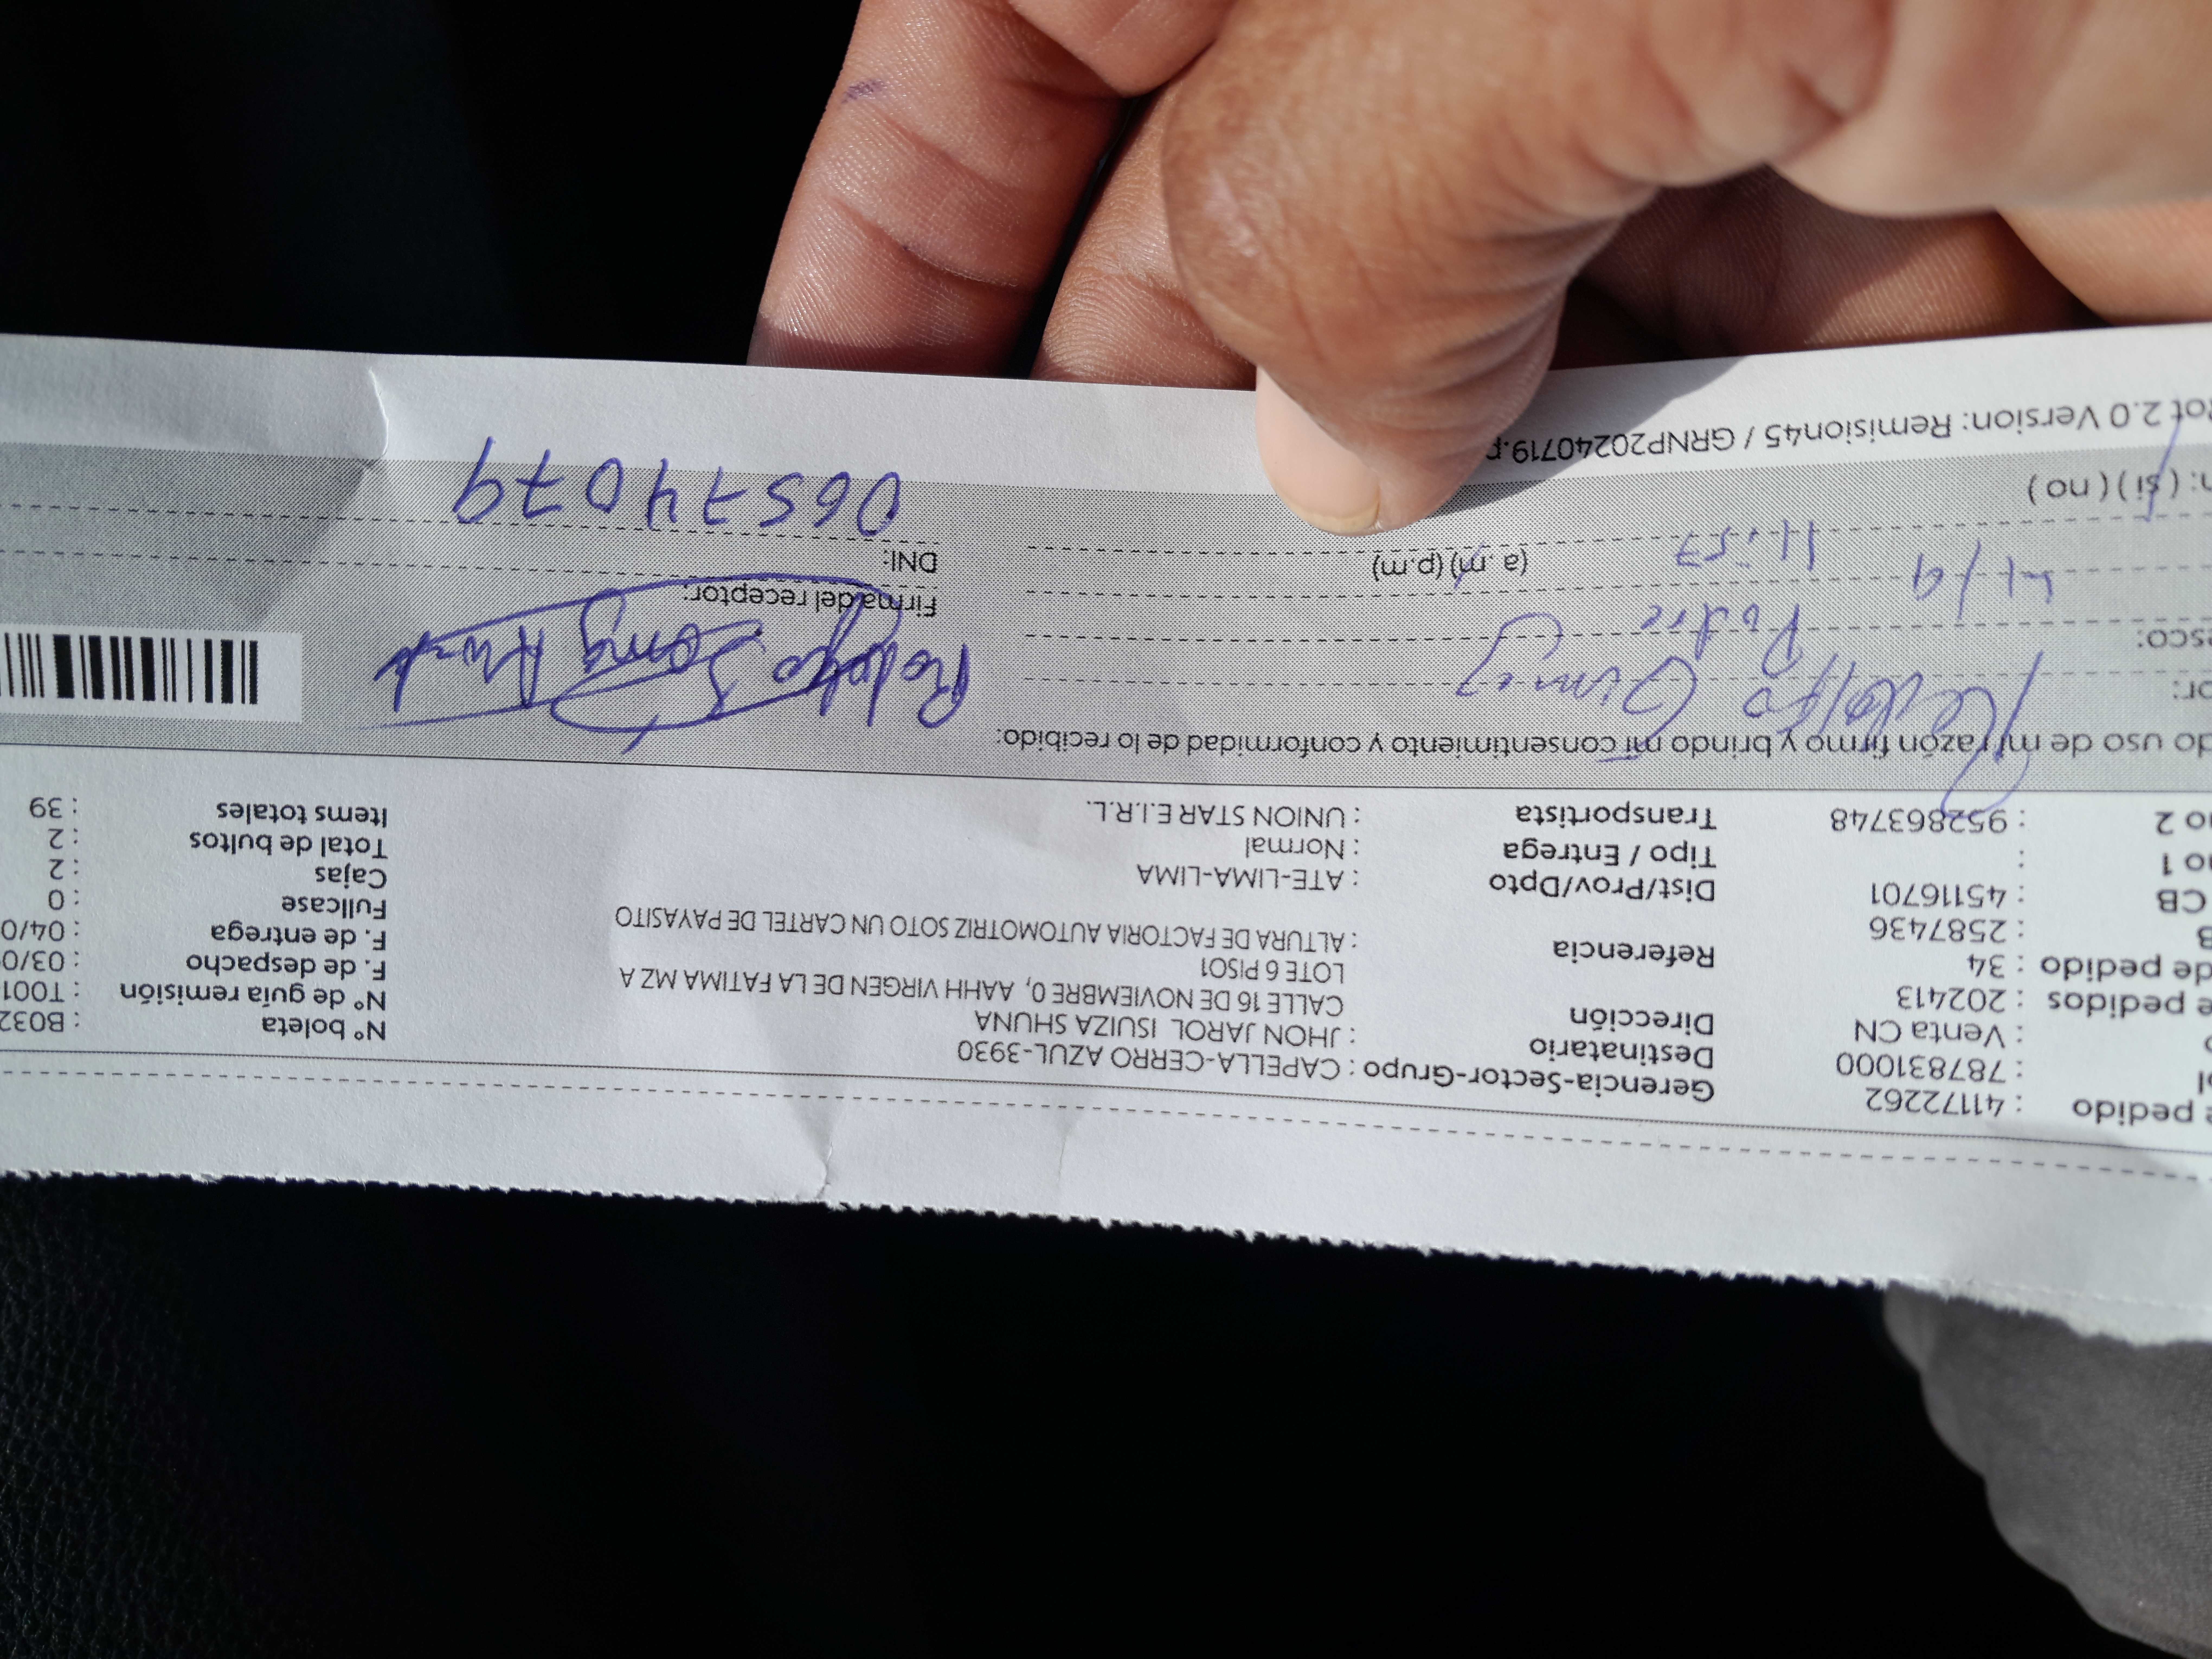 e pedido : 41172262
ol : 787831000
o : Venta CN
e pedidos : 202413
de pedido : 34
B : 2587436
CB : 45116701
no 1 :
no 2 : 952863748
Gerencia-Sector-Grupo : CAPELLA-CERRO AZUL-3930
Destinatario : JHON JAROL ISUIZA SHUNA
Dirección CALLE 16 DE NOVIEMBRE 0, AAHH VIRGEN DE LA FATIMA MZ A
LOTE 6 PISO1
Referencia : ALTURA DE FACTORIA AUTOMOTRIZ SOTO UN CARTEL DE PAYASITO
Dist/Prov/Dpto : ATE-LIMA-LIMA
Tipo / Entrega : Normal
Transportista : UNION STAR E.I.R.L.
N° boleta : B032
N° de guía remisión : T001
F. de despacho : 03/0
F. de entrega : 04/0
Fullcase : 0
Cajas : 2
Total de bultos : 2
Items totales : 39
do uso de mi razón firmo y brindo mi consentimiento y conformidad de lo recibido:
or: Rodolfo
esco: Padre
4/9 11:57 (a.m) (p.m)
n: ( si ) ( no )
Rodolfo
Firma del receptor:
DNI:
06574079
ot 2.0 Version: Remision45 / GRNP20240719.p